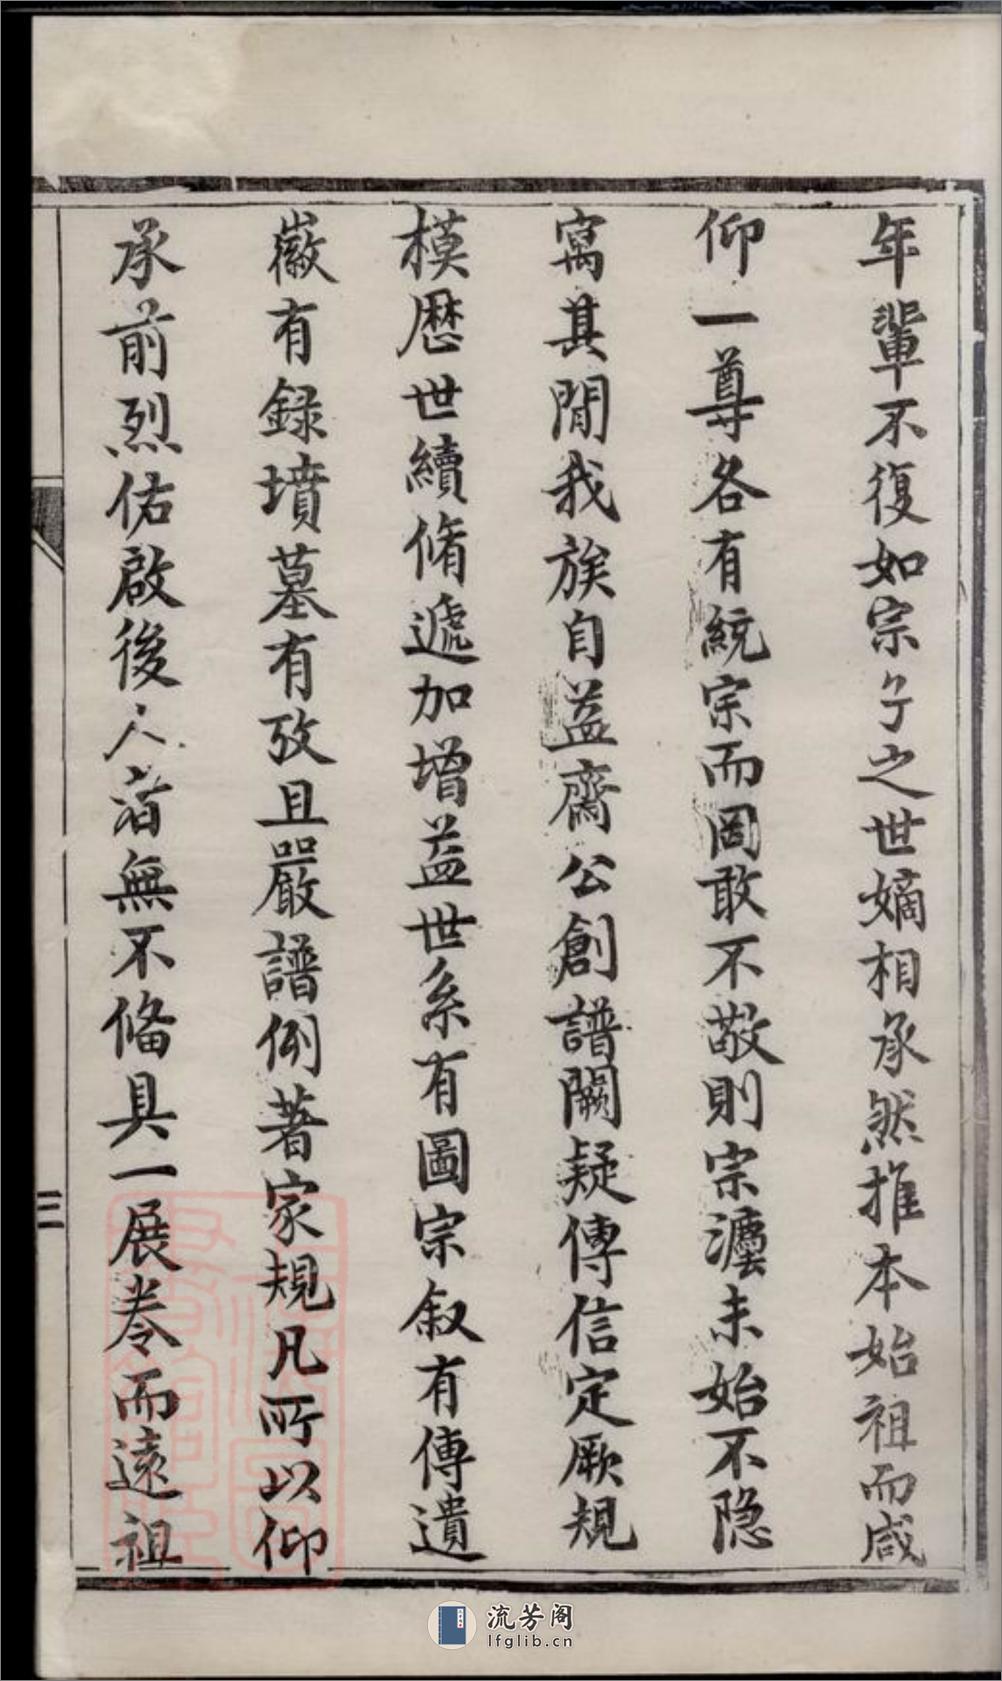 年輩不復如宗子之世嫡相承然推本始祖而咸
仰一尊各有統宗而罔敢不敬則宗灋未始不隐
寓其閒我族自益齋公創譜闕疑傳信定厥規
模歷世續脩遞加增益世系有圖宗叙有傳遺
徽有錄墳墓有攷且嚴譜例著家規凡所以仰
承前烈佑啟後人者無不俻具一展卷而遠祖
三
流芳阁
lfglib.cn